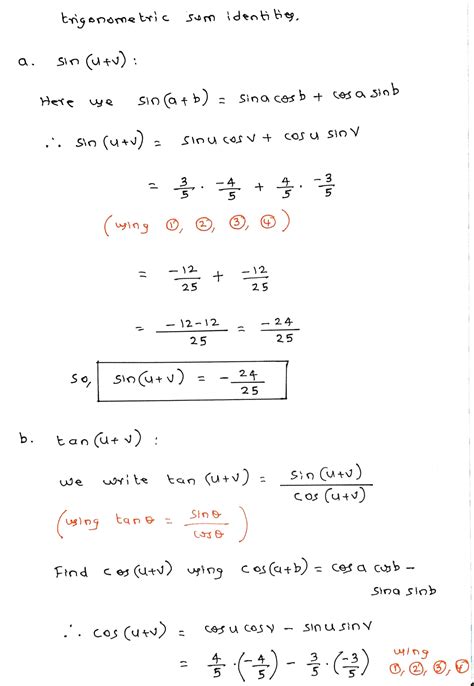 trigonometric sum identities.
a. sin (u+v) :
Here we sin(a+b) = sina cosb + cosa sinb
∴ sin (u+v) = sinu cosv + cosu sinv
= 3/5 · -4/5 + 4/5 · -3/5
(using ①, ②, ③, ④)
= -12/25 + -12/25
= -12-12/25 = -24/25
so, sin(u+v) = -24/25
b. tan(u+v) :
we write tan (u+v) = sin(u+v)/cos(u+v)
(using tanθ = sinθ/cosθ)
Find cos(u+v) using cos(a+b) = cosa cosb -
sina sinb
∴ cos(u+v) = cosu cosv - sinu sinv
= 4/5 · (-4/5) - 3/5 · (-3/5) using ①, ②, ③, ④